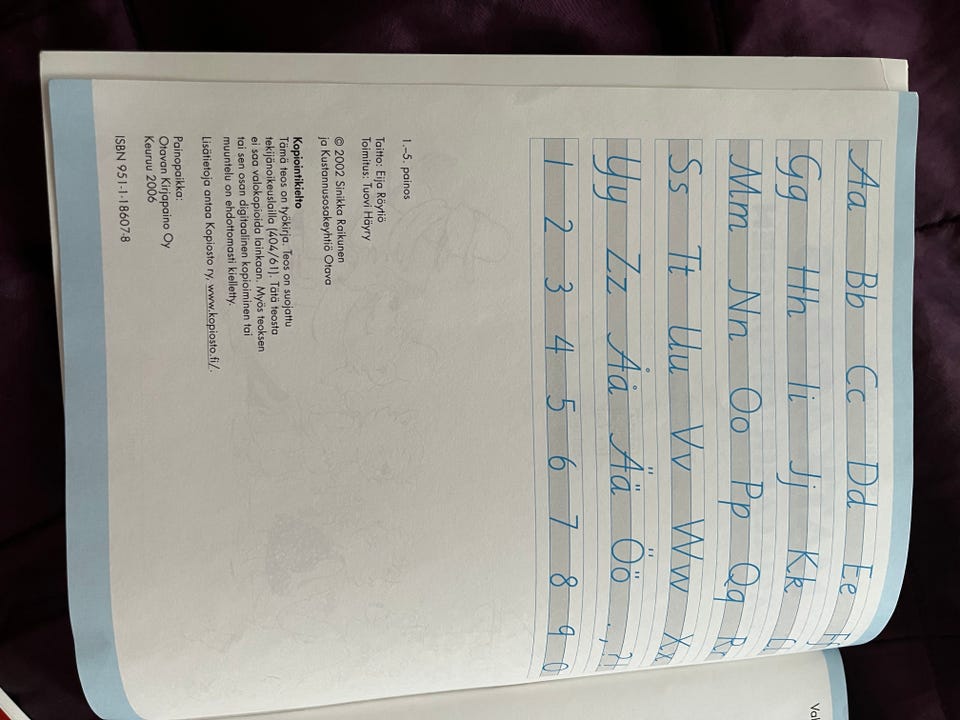 Aa Bb Cc Dd Ee Ff
Gg Hh Ii Jj Kk Ll
Mm Nn Oo Pp Qq Rr
Ss Tt Uu Vv Ww Xx
Yy Zz Åå Ää Öö . , ?!
1 2 3 4 5 6 7 8 9 0
1.–5. painos
Taitto: Eija Röytiö
Toimitus: Tuovi Häyry
© 2002 Sinikka Raikunen
ja Kustannusosakeyhtiö Otava
Kopiointikielto
Tämä teos on työkirja. Teos on suojattu
tekijänoikeuslailla (404/61). Tätä teosta
ei saa valokopioida lainkaan. Myös teoksen
tai sen osan digitaalinen kopioiminen tai
muuntelu on ehdottomasti kielletty.
Lisätietoja antaa Kopiosto ry, www.kopiosto.fi/.
Painopaikka:
Otavan Kirjapaino Oy
Keuruu 2006
ISBN 951-1-18607-8